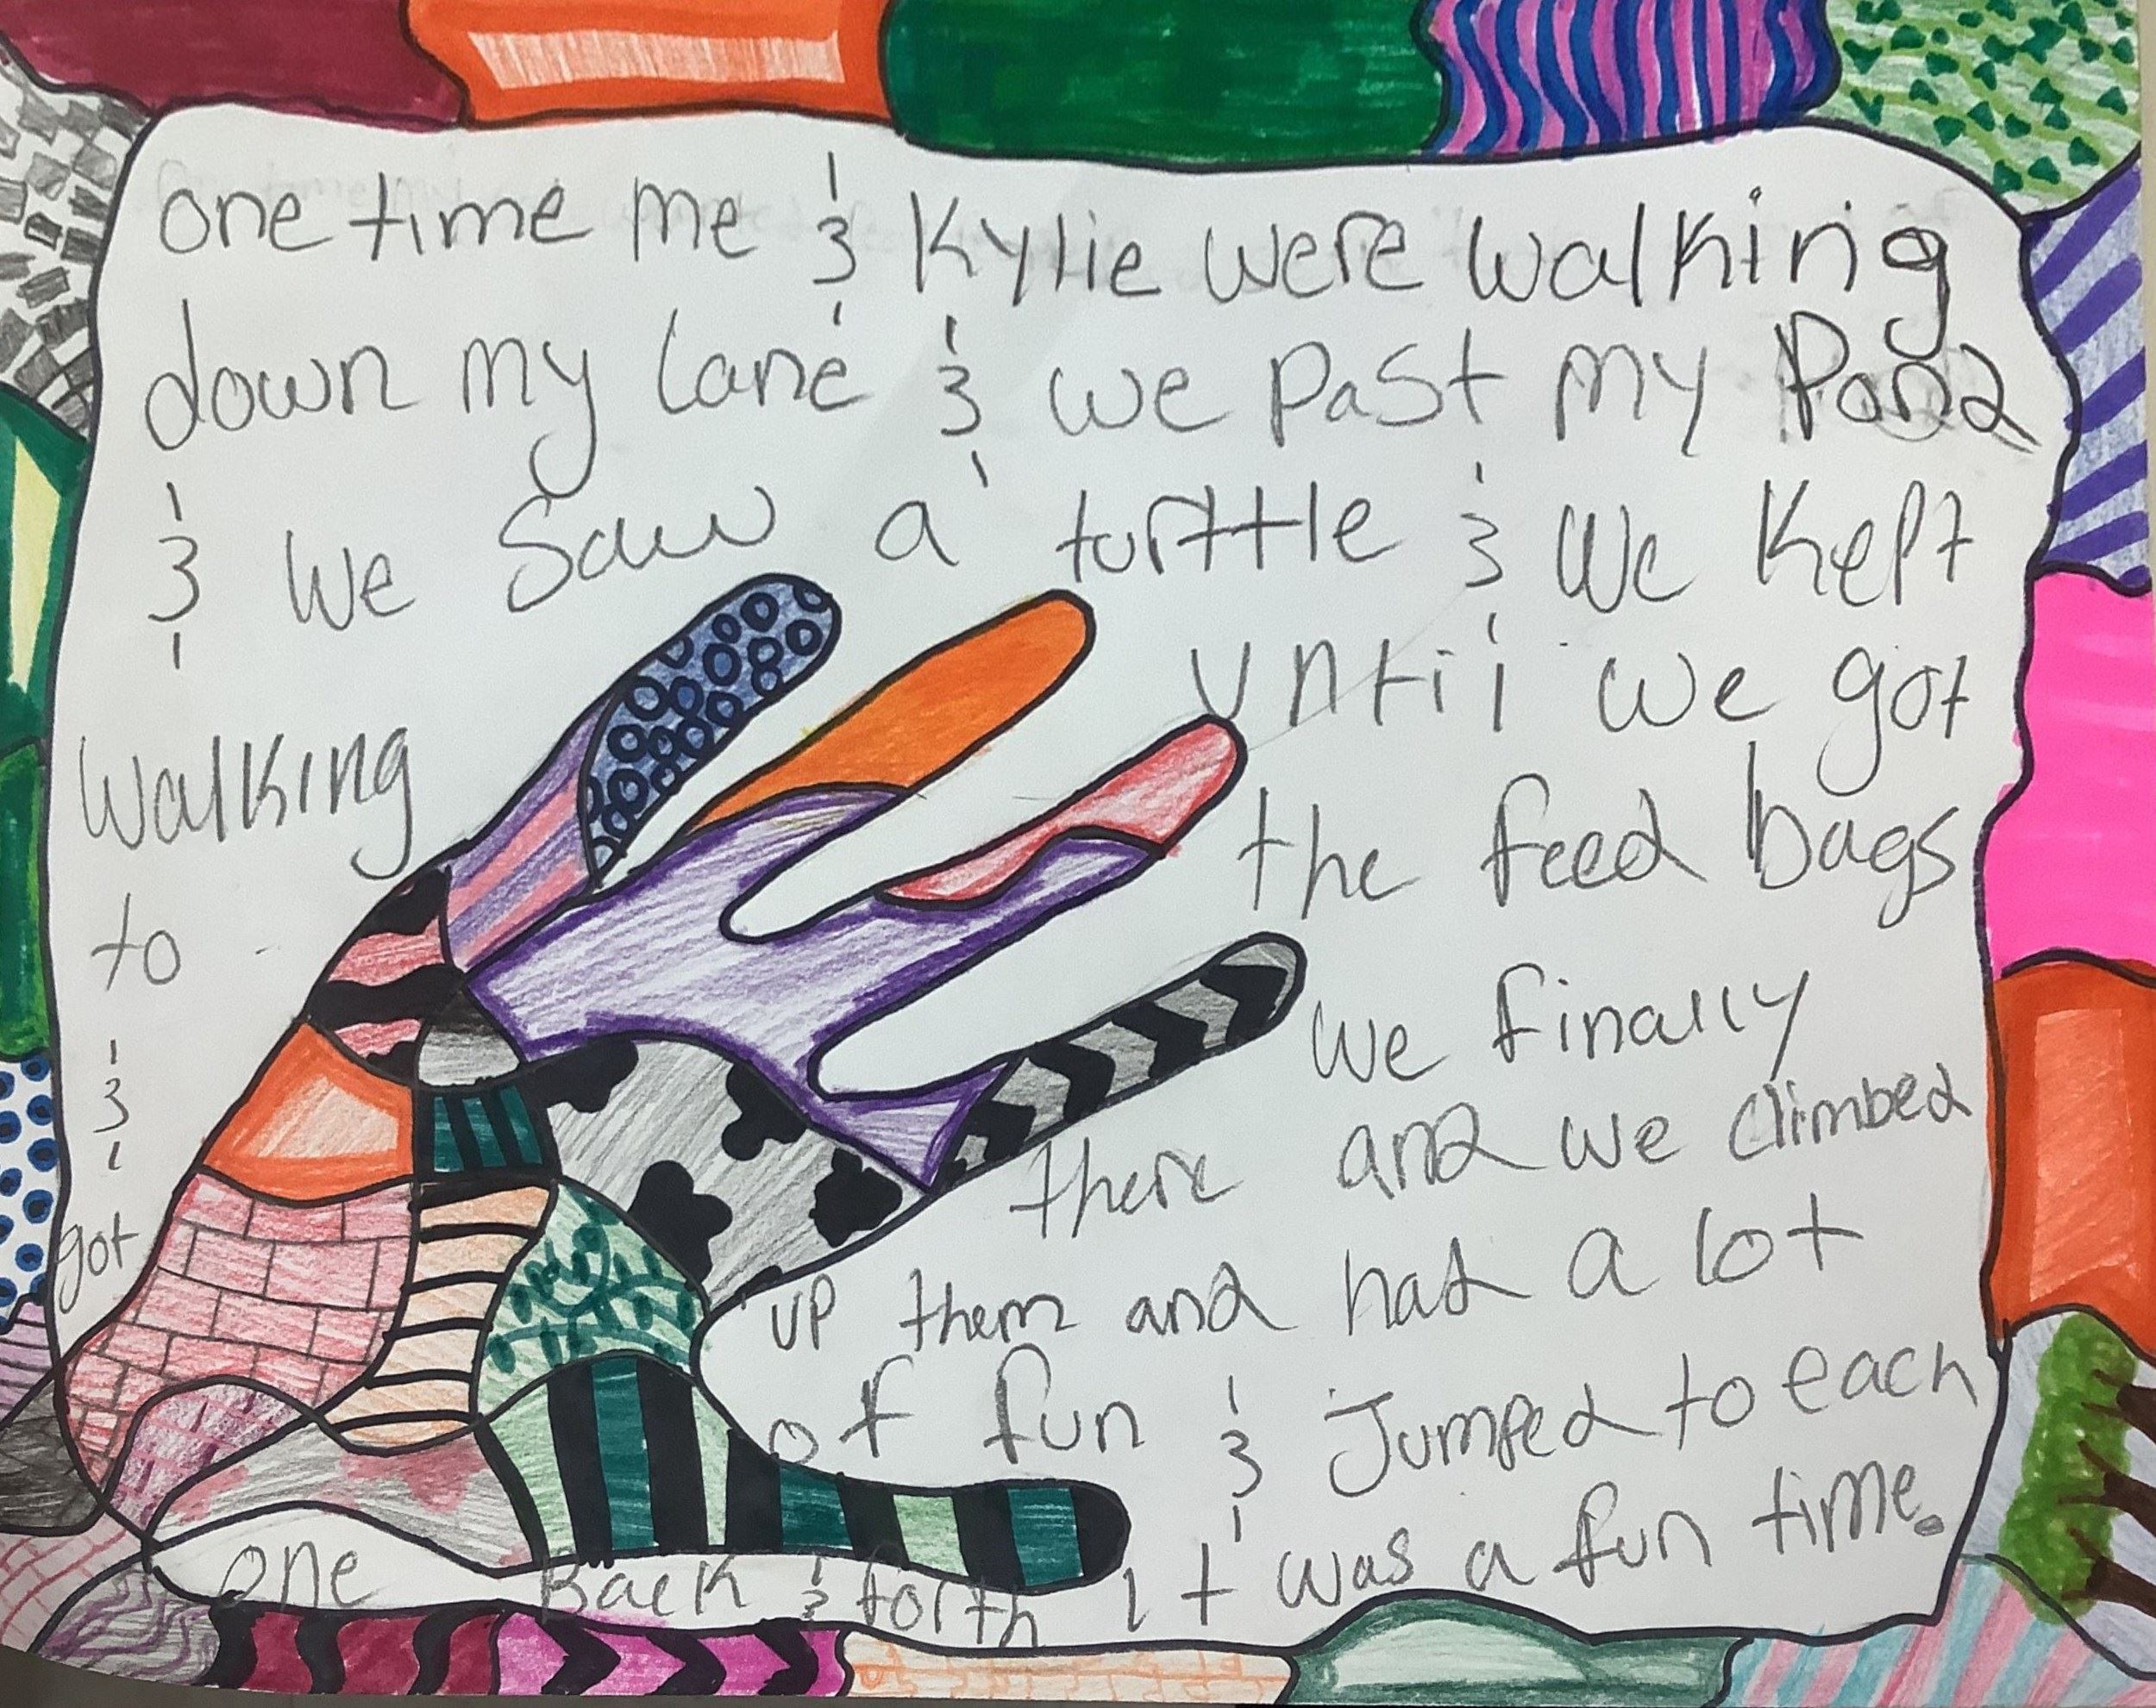 one time me & Kylie were walking
down my lane & we past my Pond
& we saw a turttle & we kept
walking until we got
to the feed bags
& we finally
got there and we climbed
up them and had a lot
of fun & Jumped to each
one Back & forth it was a fun time.